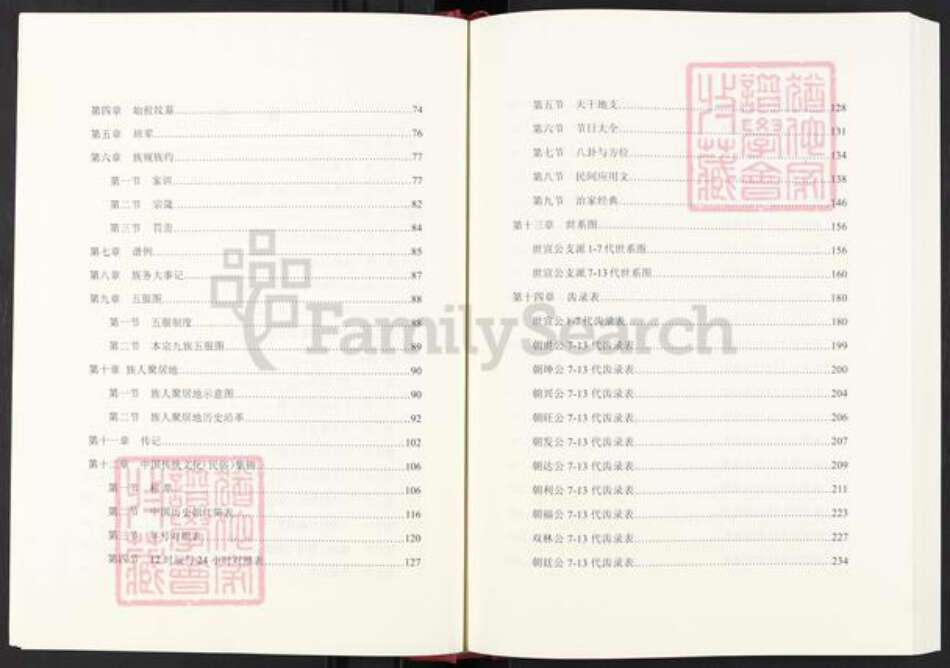 第四章 始祖坟墓 74
第五章 班辈 76
第六章 族规族约 77
第一节 家训 77
第二节 宗箴 82
第三节 罚责 84
第七章 谱例 85
第八章 族务大事记 87
第九章 五服图 88
第一节 五服制度 88
第二节 本宗九族五服图 89
第十章 族人聚居地 90
第一节 族人聚居地示意图 90
第二节 族人聚居地历史沿革 92
第十一章 传记 102
第十二章 中国传统文化(民俗)集锦 106
第一节 106
第二节 中国历史朝代简表 116
第三节 年号对照表 120
第四节 12时辰与24小时对照表 127
第五节 天干地支 128
第六节 节日大全 131
第七节 八卦与方位 134
第八节 民间应用文 138
第九节 治家经典 146
第十三章 世系图 156
世宣公支派1-7代世系图 156
世宣公支派7-13代世系图 160
第十四章 齿录表 180
世宣公1-7代齿录表 180
7-13代齿录表 199
朝坤公7-13代齿录表 200
朝兴公7-13代齿录表 204
朝旺公7-13代齿录表 206
朝发公7-13代齿录表 207
朝达公7-13代齿录表 209
朝利公7-13代齿录表 211
朝福公7-13代齿录表 223
双林公7-13代齿录表 227
朝廷公7-13代齿录表 234
FamilySearch